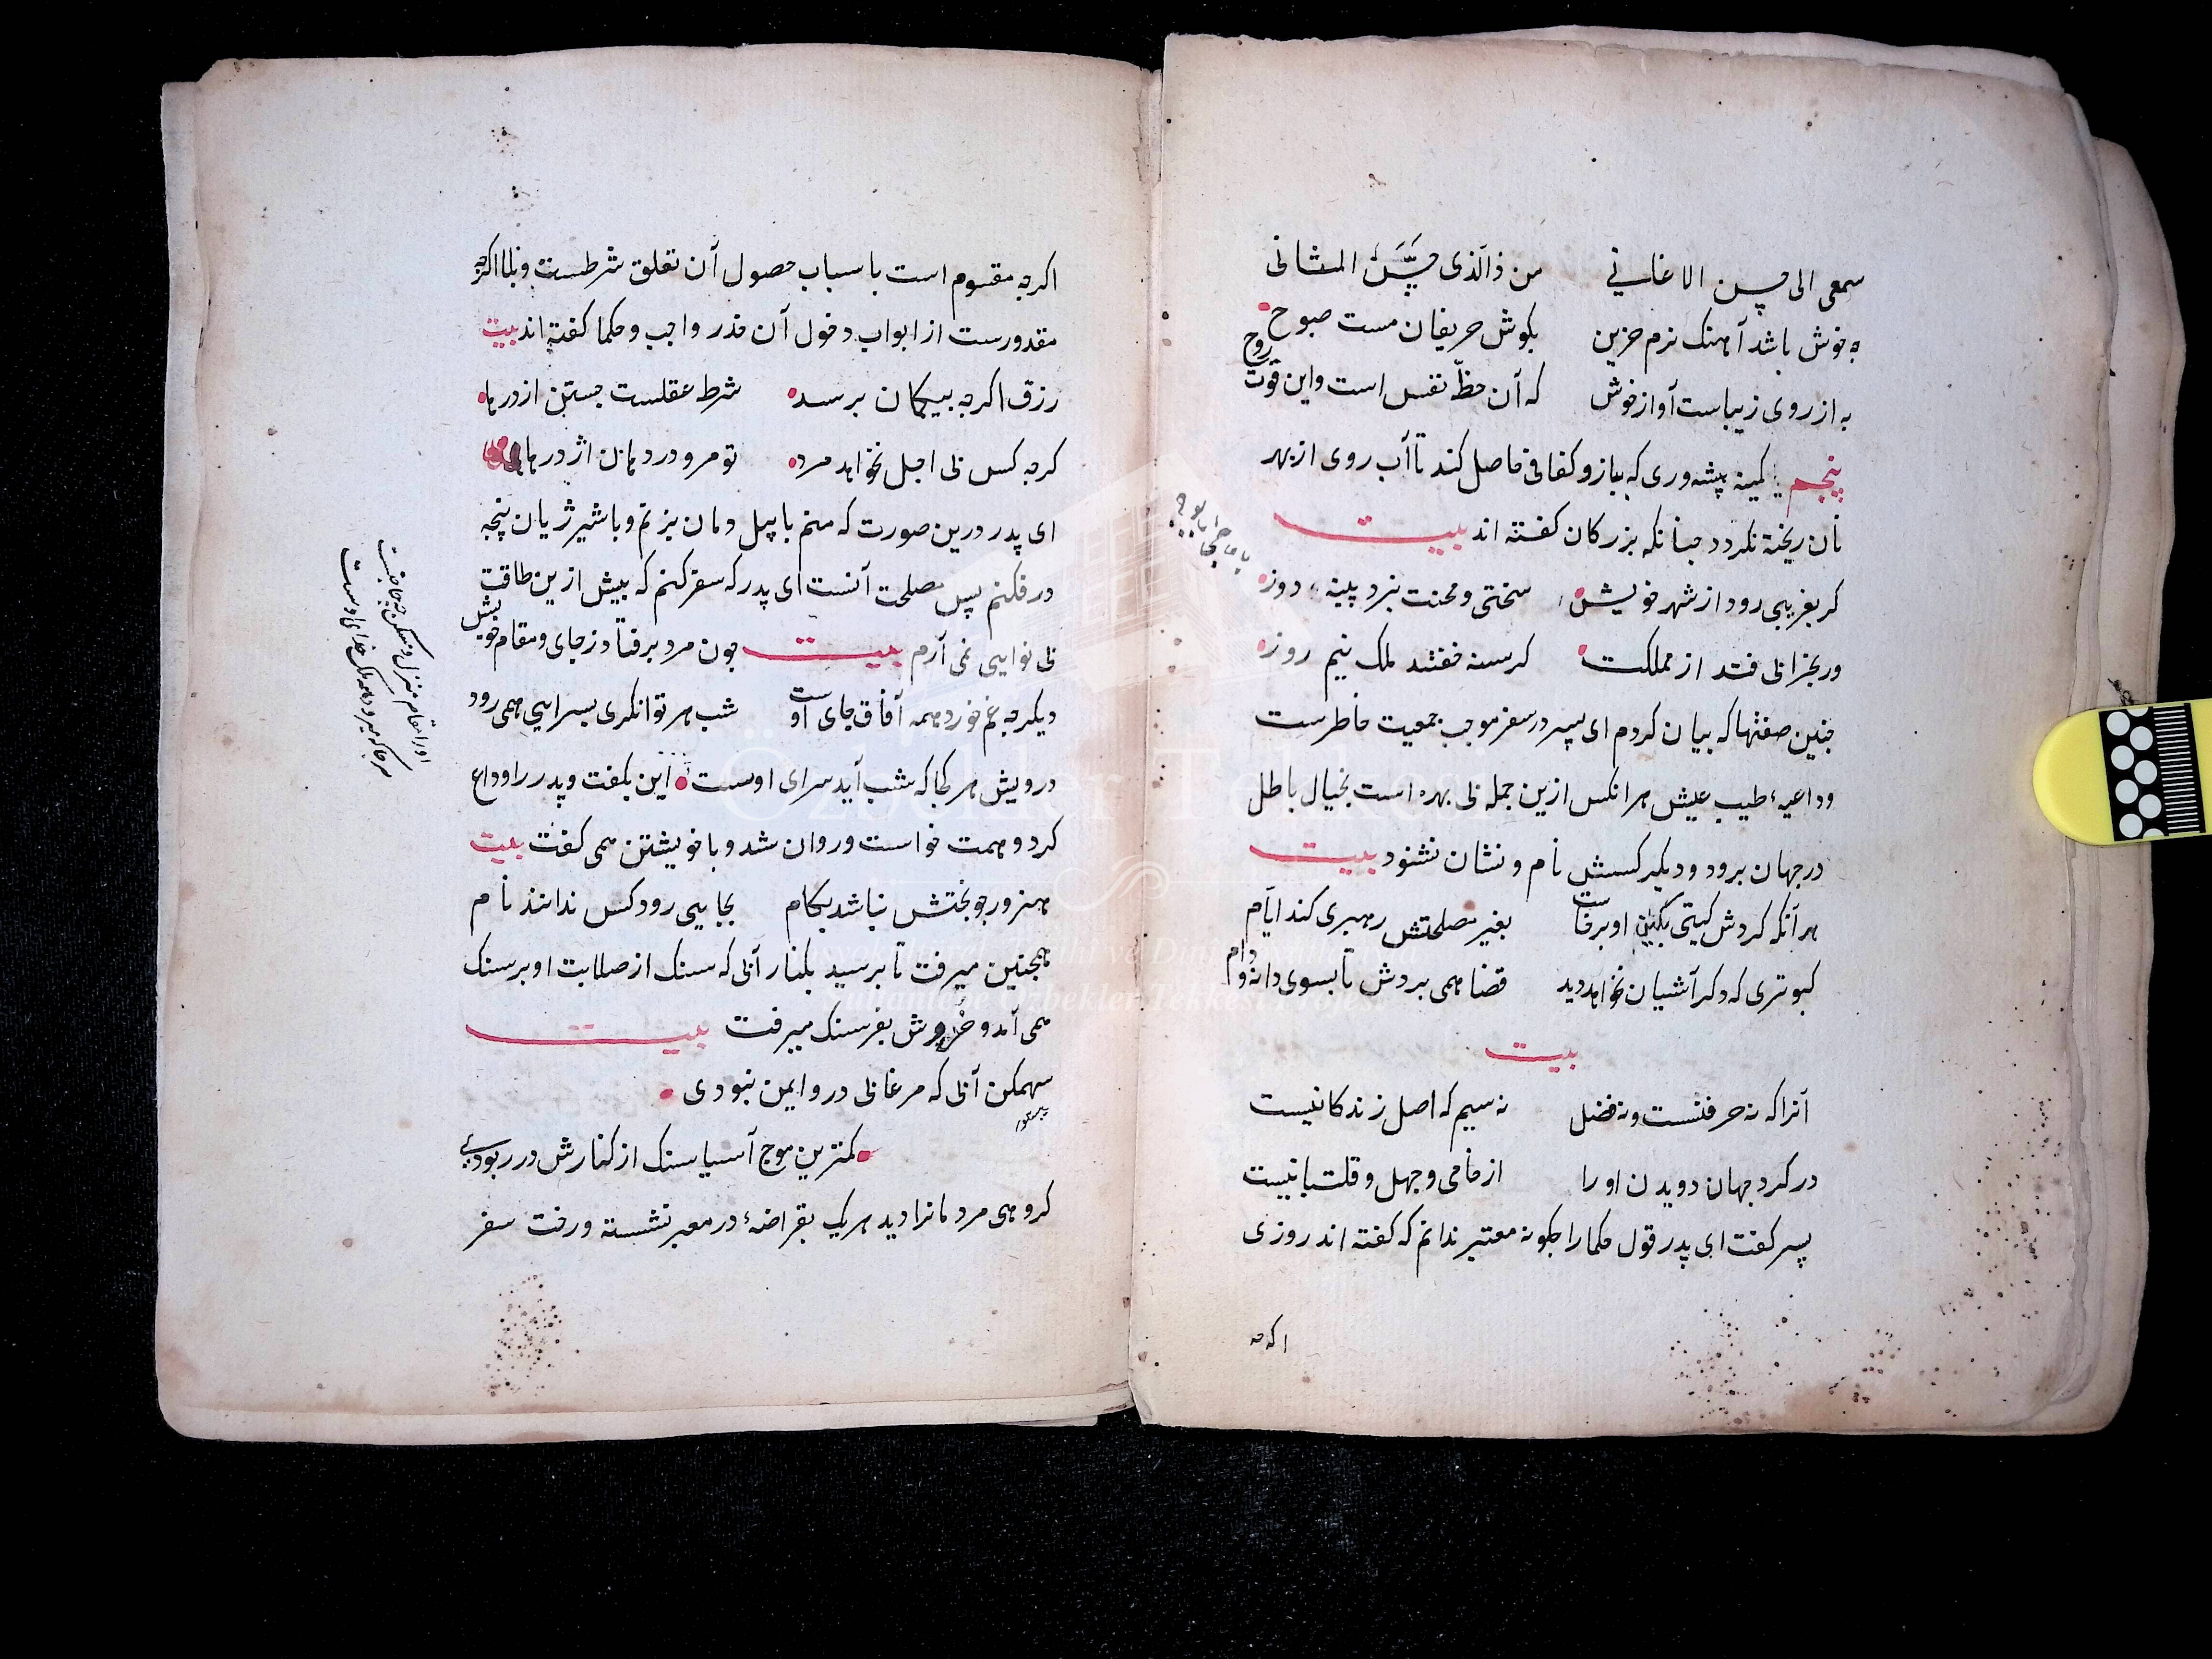 سمعی الی حسن الاغانی من ذا الّذی جَسَّ المثانی
چه خوش باشد آهنک نرم حزین بکوش حریفان مست صبوح
به از روی زیباست آواز خوش که آن حظّ نفس است واین قوت
روح
پنجم کمینه پیشه وری که ببازو کفافی حاصل کند تا آب روی از بهر
نان ریخته نکردد چنانکه بزرکان کفته اند بیت
کر بغریبی رود از شهر خویش سختی ومحنت نبرد پینه دوز
ور بخرابی فتد از مملکت کرسنه خفتد ملک نیم روز
چنین صفتها که بیان کردم ای پسر در سفر موجب جمعیت خاطرست
وداعیهٔ طیب عیش هر انکس ازین جمله بی بهره است بخیال باطل
در جهان برود ودیکر کسش نام ونشان نشنود بیت
هر آنکه کردش کیتی بکین او برخاست بغیر مصلحتش رهبری کند ایّام
کبوتری که دکر آشیان نخواهد دید قضا همی بردش تا بسوی دانه ودام
دام
بیت
آنرا که نه حرفتست ونه فضل نه سیم که اصل زندکانیست
در کرد جهان دویدن او را از خامی وجهل وقلتبانیست
پسر کفت ای پدر قول حکما را چکونه معتبر ندانم که کفته اند روزی
اکرچه
اکرچه مقسوم است باسباب حصول آن تعلق شرطست وبلا اکرچه
مقدورست از ابواب دخول آن حذر واجب وحکما کفته اند بیت
رزق اکرچه بیکمان برسد شرط عقلست جستن از درها
کرچه کس بی اجل نخواهد مرد تو مرو در دهان اژدرها
ای پدر درین صورت که منم با پیل دمان بزنم وبا شیر ژیان پنجه
در فکنم پس مصلحت آنست ای پدر که سفر کنم که بیش ازین طاقت
بی نوایی نمی آرم بیت چون مرد برفتاد ز جای ومقام خویش
دیکر چه غم خورد همه آفاق جای اوست شب هر توانکری بسرایی همی رود
درویش هر کجا که شب آید سرای اوست این بکفت وپدر را وداع
کرد وهمت خواست وروان شد وبا خویشتن همی کفت بیت
هنرور چو بختش نباشد بکام بجایی رود کس ندانند نام
همچنین میرفت تا برسید بکنار آبی که سنک از صلابت او بر سنک
همی آمد وخروش بفرسنک میرفت بیت
سهمکن آبی که مرغابی درو ایمن نبودی
کمترین موج آسیا سنک از کنارش در ربودی
کروهی مردمانرا دید هر یک بقراضهٔ در معبر نشسته ورخت سفر
او را مقام ومنزل ومسکن چه حاجتست
هر جا که میرود همه ملک خدای اوست